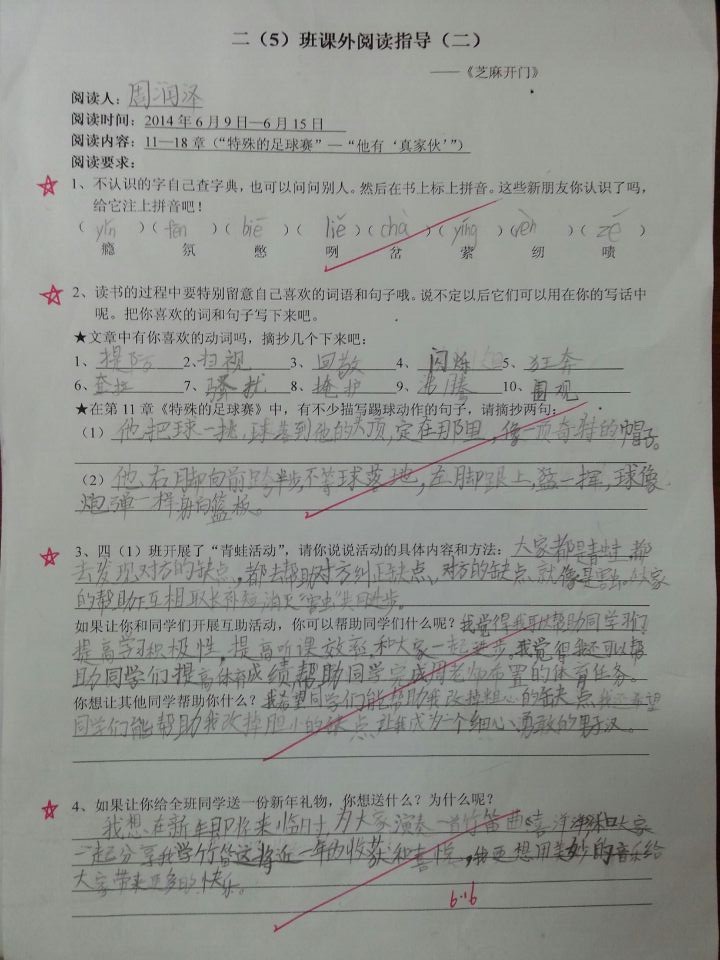 二（5）班课外阅读指导（二）
——《芝麻开门》
阅读人：周润泽
阅读时间：2014年6月9日—6月15日
阅读内容：11—18章（“特殊的足球赛”—“他有‘真家伙’”）
阅读要求：
1、不认识的字自己查字典，也可以问问别人。然后在书上标上拼音。这些新朋友你认识了吗，
给它注上拼音吧！
（yǐn）（fēn）（biē）（liě）（chà）（yíng）（rèn）（zé）
瘾 氛 憋 咧 岔 萦 纫 啧
2、读书的过程中要特别留意自己喜欢的词语和句子哦。说不定以后它们可以用在你的写话中
呢。把你喜欢的词和句子写下来吧。
★文章中有你喜欢的动词吗，摘抄几个下来吧：
1、提防 2、扫视 3、回敬 4、闪烁 5、狂奔
6、 7、骚扰 8、掩护 9、沸腾 10、围观
★在第11章《特殊的足球赛》中，有不少描写踢球动作的句子，请摘抄两句：
（1）他把球一挑，球蹿到他的头顶，定在那里，像一顶奇特的帽子。
（2）他右脚向前跨半步，不等球落地，左脚跟上，猛一挥，球像
炮弹一样射向篮板。
3、四（1）班开展了“青蛙活动”，请你说说活动的具体内容和方法：大家都是青蛙，都
去发现对方的缺点，都去帮助对方纠正缺点。对方的缺点就像是害虫。大家
的帮助互相取长补短，消灭“害虫”共同进步。
如果让你和同学们开展互助活动，你可以帮助同学们什么呢？我觉得我可以帮助同学们
提高学习积极性，提高听课效率和大家一起进步。我觉得我还可以帮
助同学们提高体育成绩帮助同学完成周老师布置的体育任务。
你想让其他同学帮助你什么？我希望同学们能帮助我改掉粗心的缺点，我还希望
同学们能帮助我改掉胆小的缺点，让我成为一个细心、勇敢的男子汉。
4、如果让你给全班同学送一份新年礼物，你想送什么？为什么呢？
我想在新年即将来临时，为大家演奏一首竹笛曲《喜洋洋》和大家
一起分享我学竹笛这将近一年的收获和喜悦，我更想用美妙的音乐给
大家带来更多的快乐。
6.19